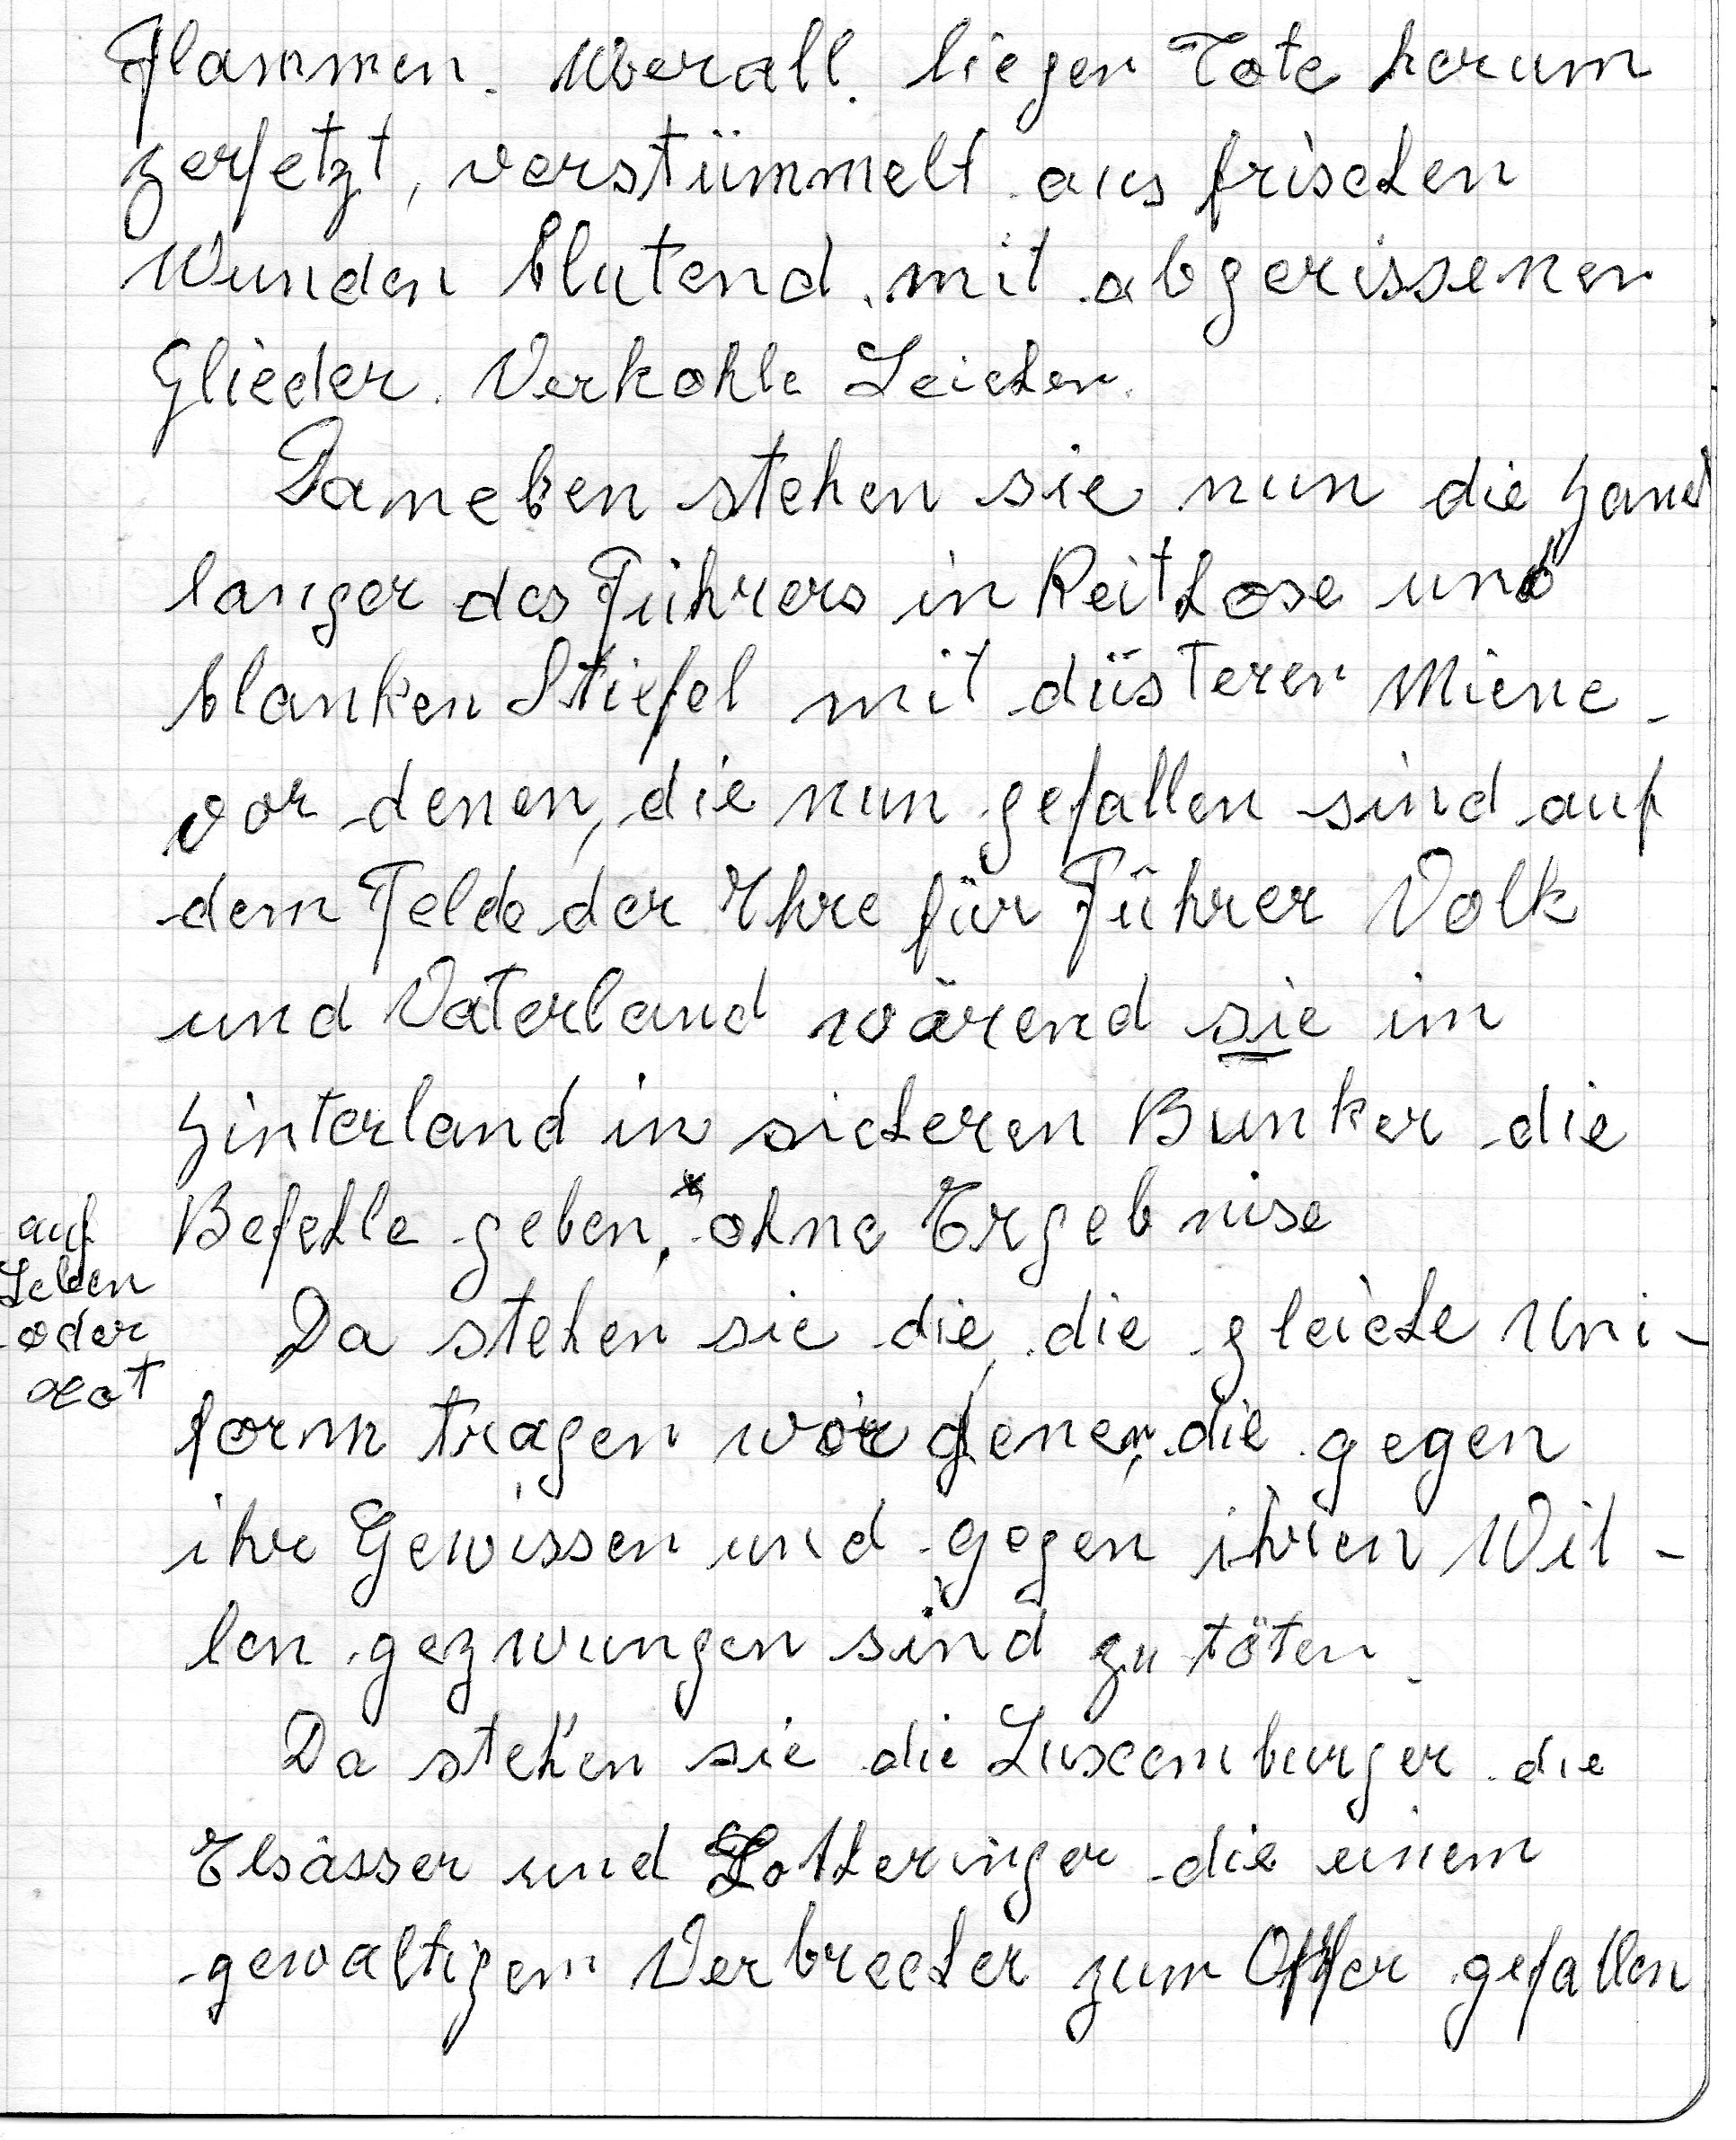 Flammen. Uberall. liegen Tote herum
zerfetzt, verstümmelt aus frischen
Wunden blutend, mit abgerissenen
Glieder. Verkohle Leichen.
Daneben stehen sie nun die Hand
langer des Führers in Reithose und
blanken Stiefel mit düsterer Miene
vor denen, die nun gefallen sind auf
dem Felde der Ehre für Führer Volk
und Vaterland wärend sie im
Hinterland in sicheren Bunker die
Befehle geben, * ohne Ergebnise
auf
Leben
oder
Tot
Da stehen sie die, die gleiche Uni-
form tragen wor denen, die gegen
ihr Gewissen und gegen ihren Wil-
len gezwungen sind zu töten.
Da stehen sie die Luxemburger die
Elsässer und Lotheringer die einem
gewaltigem Verbrecher zum Opfer gefallen